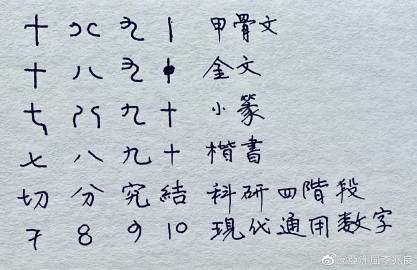 十 八 九 丨 甲骨文
十 八 九 金文
七 八 九 十 小篆
七 八 九 十 楷書
切 分 究 結 科研四階段
7 8 9 10 現代通用数字